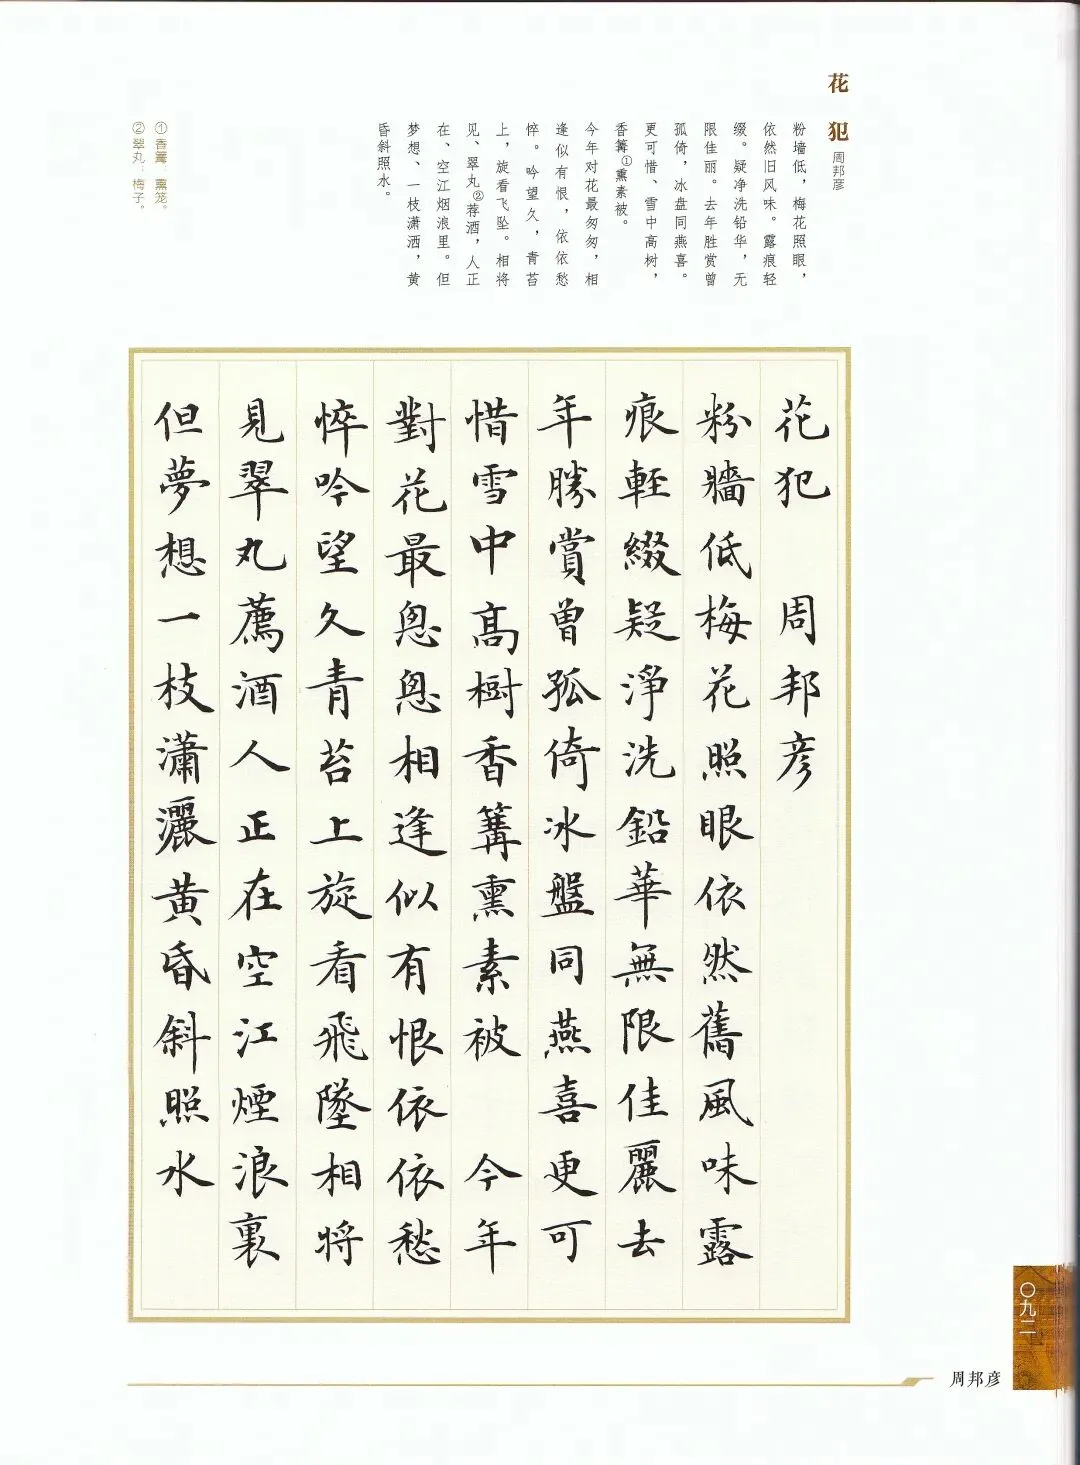 花犯
周邦彦
粉墙低，梅花照眼，
依然旧风味。露痕轻
缀。疑净洗铅华，无
限佳丽。去年胜赏曾
孤倚，冰盘同燕喜。
更可惜、雪中高树，
香篝①熏素被。
今年对花最匆匆，相
逢似有恨，依依愁
悴。吟望久，青苔
上，旋看飞坠。相将
见、翠丸②荐酒，人正
在、空江烟浪里。但
梦想、一枝潇洒，黄
昏斜照水。
①香篝：薰笼。
②翠丸：梅子。
花犯 周邦彥
粉牆低梅花照眼依然舊風味露
痕輕綴疑淨洗鉛華無限佳麗去
年勝賞曾孤倚冰盤同燕喜更可
惜雪中高樹香篝熏素被 今年
對花最悤悤相逢似有恨依依愁
悴吟望久青苔上旋看飛墜相將
見翠丸薦酒人正在空江煙浪裏
但夢想一枝瀟灑黃昏斜照水
〇九二
周邦彦